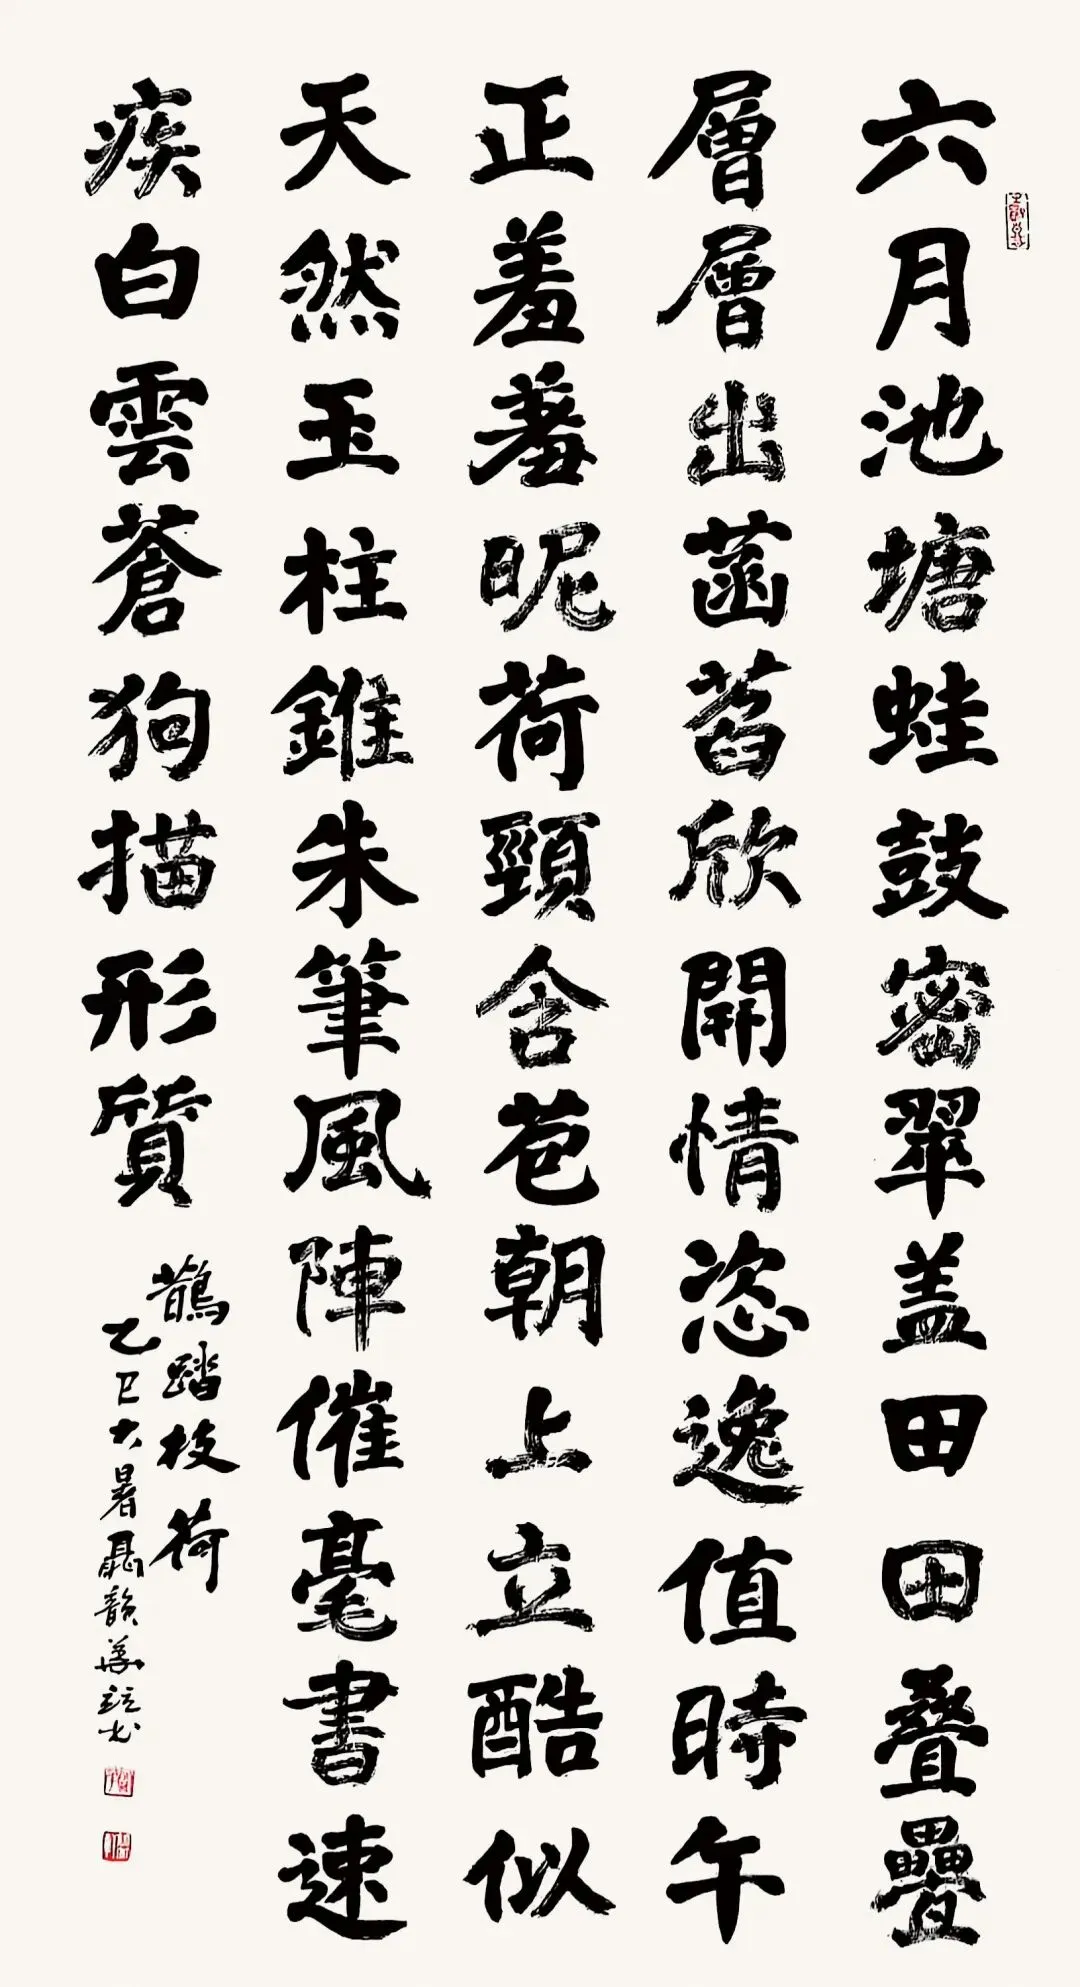 六月池塘蛙鼓密翠盖田田叠疊
層層出菡萏欣開情恣逸值時午
正羞羞昵荷頸含苞朝上立酷似
天然玉柱錐朱筆風陣催毫書速
疾白雲蒼狗描形質
鵲踏枝荷
乙巳大暑聶韻